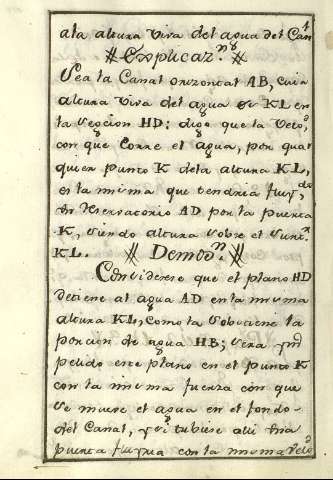 ala altura viva del agua del Can.l
Explicaz.n
Sea la Canal orizontal AB, cuia
altura viva del agua es KL en
la seccion HD: digo que la Velo.d
con que Corre el agua, por qual
quier punto K dela altura KL,
es la misma que tendria
Reservatorio AD por la puerta
K, siendo altura sobre el
KL. Demos.n
Considerese que el plano HD
detiene al agua AD en la misma
altura KL, como la sobstiene la
porcion de agua HB; sera
pelido este plano en el punto K
con la misma fuerza con que
se mueve el agua en el fondo
del Canal, y si tubiese alli una
puerta fluyria con la misma velo.d